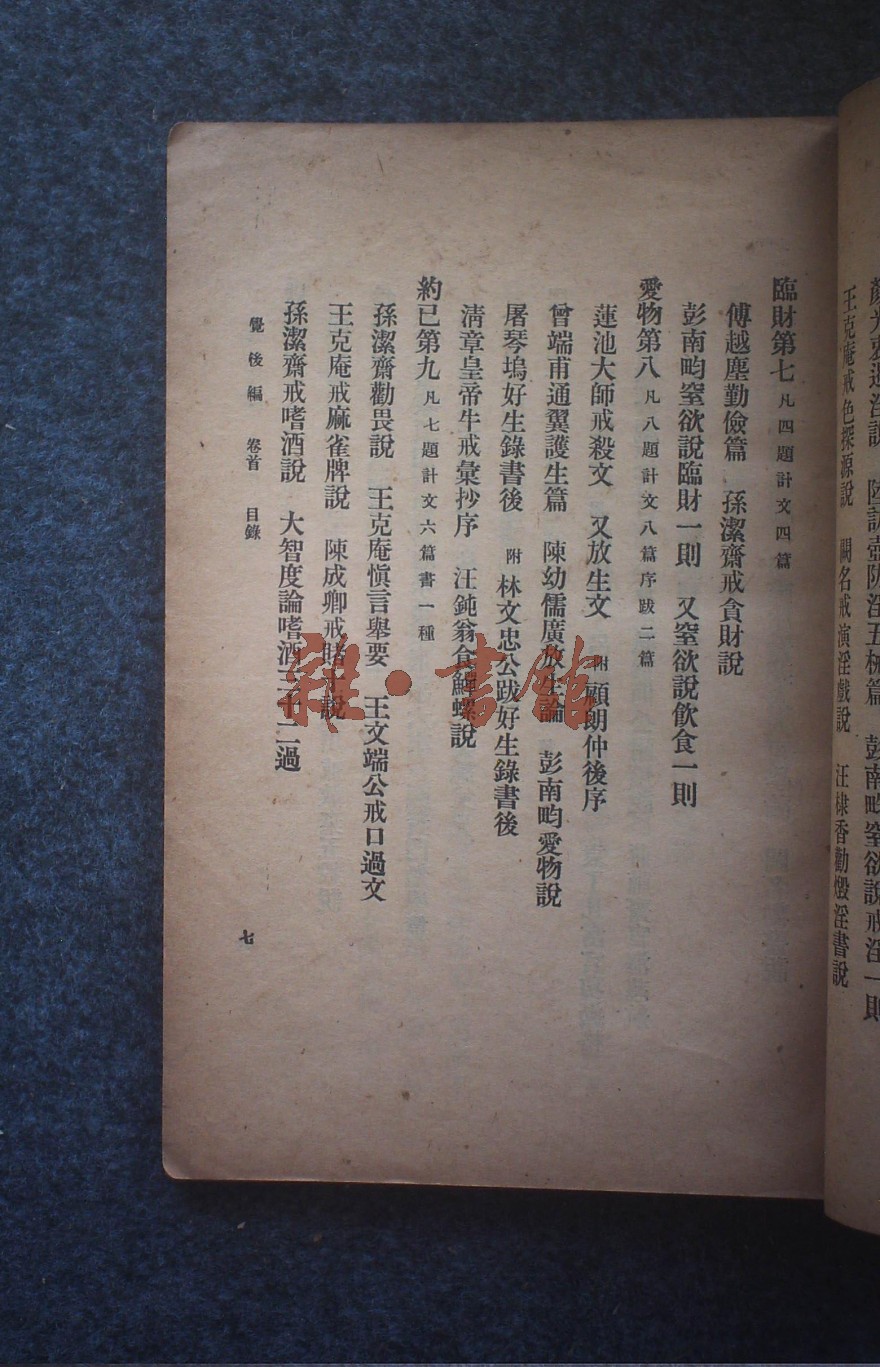 王克庵戒色探源說　闕名戒演淫戲說　汪棣香勸燬淫書說
臨財第七 凡四題計文四篇
傅越塵勤儉篇　孫潔齋戒貪財說
彭南畇窒欲說臨財一則　又窒欲說飲食一則
愛物第八 凡八題計文八篇序跋二篇
蓮池大師戒殺文　又放生文 附 顧朗仲後序
曾端甫通翼護生篇　陳幼儒廣放生論　彭南畇愛物說
屠琴塢好生錄書後 附 林文忠公跋好生錄書後
清章皇帝牛戒彙抄序　汪鈍翁食鱓螺說
約已第九 凡七題計文六篇書一種
孫潔齋勸畏說　王克庵愼言舉要　王文端公戒口過文
王克庵戒麻雀牌說　陳成卿戒賭十說
孫潔齋戒嗜酒說　大智度論嗜酒三十二過
覺後編　卷首　目錄
七
雜·書館